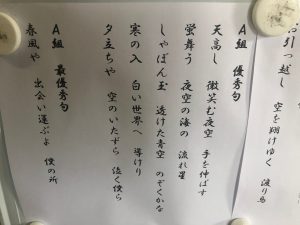 お引っ越し 空を翔けゆく 渡り鳥
A組 優秀句
天高し 微笑む夜空 手を伸ばす
蛍舞う 夜空の海の 流れ星
しゃぼん玉 透けた青空 のぞくかな
寒の入 白い世界へ 導けり
夕立ちや 空のいたずら 泣く僕ら
A組 最優秀句
春風や 出会い運ぶよ 僕の所